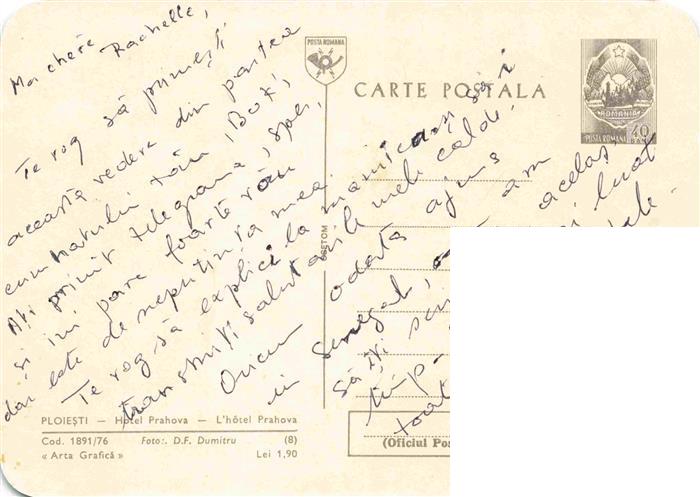 Ma chère Rachelle,
Te rog să primești
aceasta vedere din partea
cumnatului tău, Bot,
Ați primit telegrama, sper,
și îmi pare foarte rău
dar este de neputința mea
Te rog să explici la mamican să-i
transmiți salutările mele calde.
Oricum odată ajuns
în Senegal, am
să îți acelaș
timp luat
toat
POSTA ROMANA
CARTE POSTALA
ROMANIA
POSTA ROMANA 40
PLOIEȘTI — Hotel Prahova — L'hôtel Prahova
Cod. 1891/76 Foto:. D.F. Dumitru (8)
« Arta Grafică » Lei 1,90
(Oficiul Poș